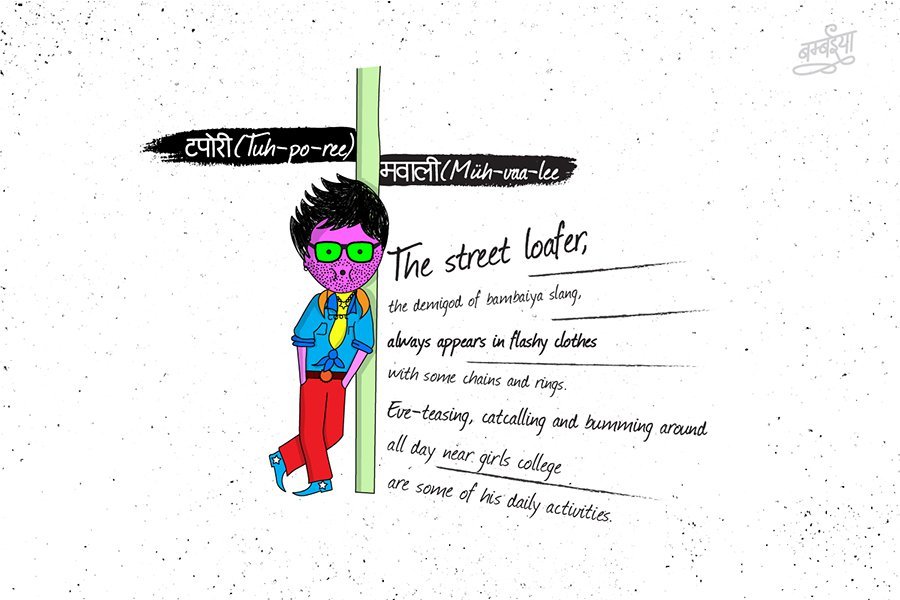 बम्बईया
टपोरी (Tuh-po-ree)
मवाली (Müh-vaa-lee
The street loafer,
the demigod of bambaiya slang,
always appears in flashy clothes
with some chains and rings.
Eve-teasing, catcalling and bumming around
all day near girls college
are some of his daily activities.